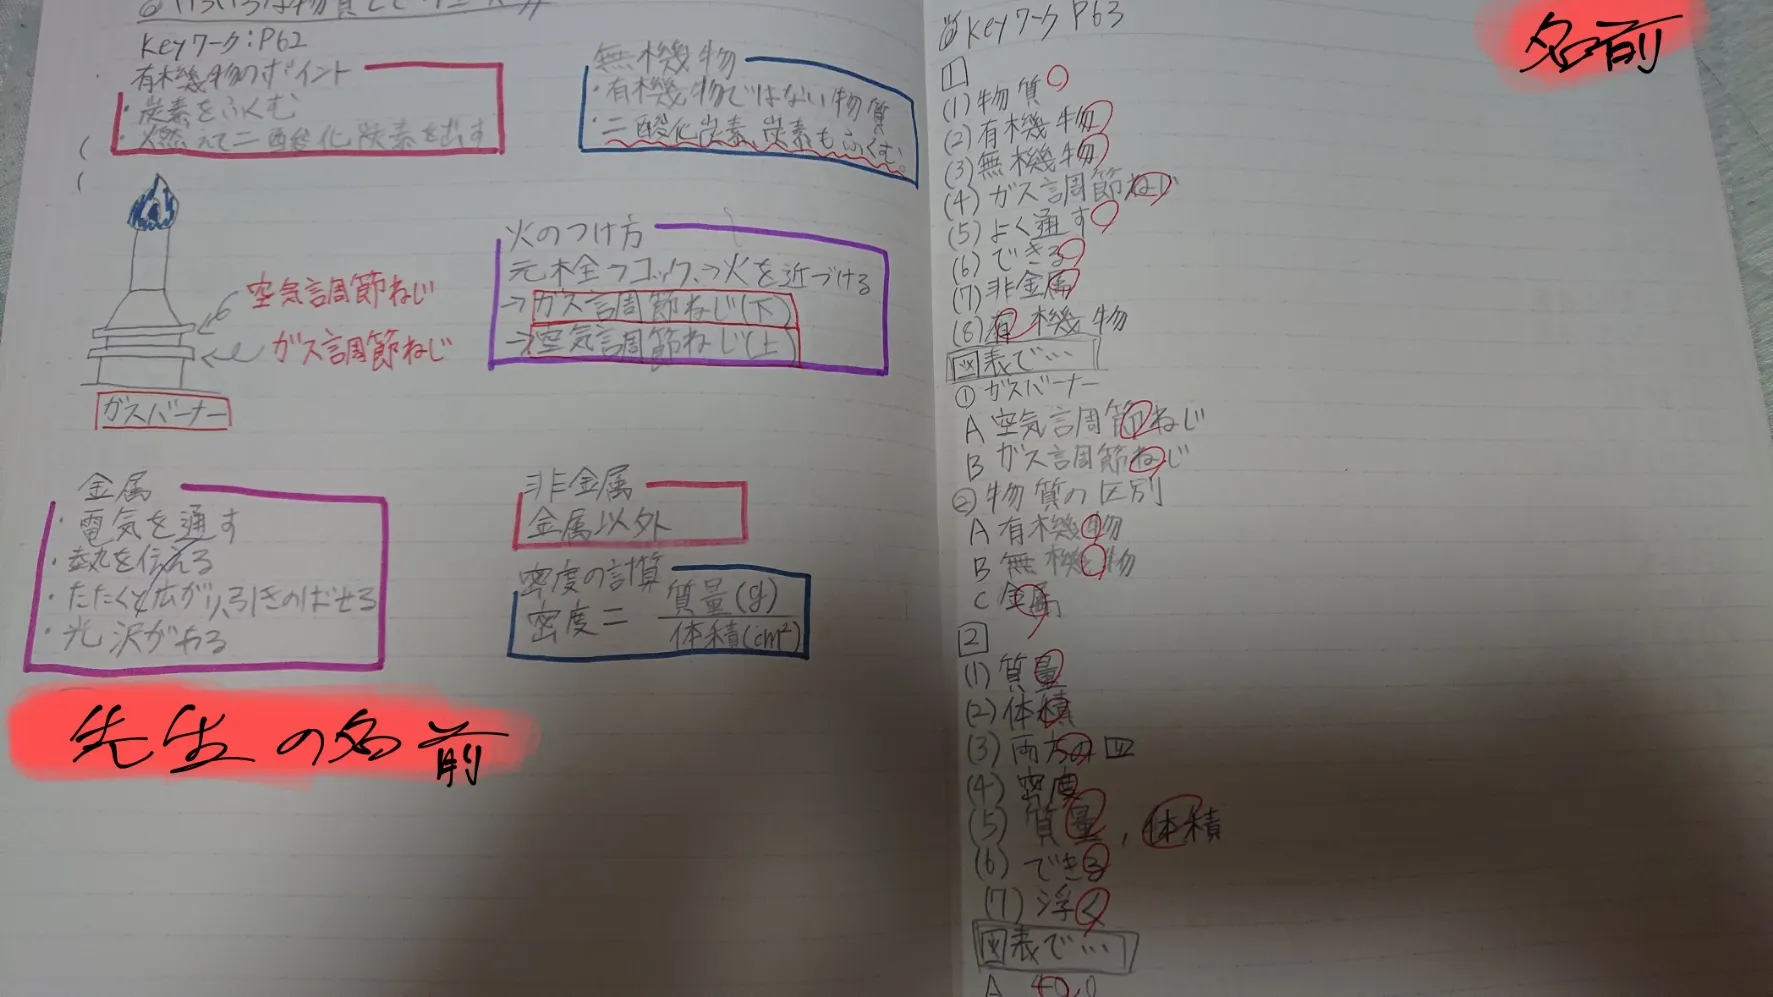 ◎いろいろな物質とその区別
Keyワーク:P62
有機物のポイント
・炭素をふくむ
・燃えて二酸化炭素を出す
無機物
・有機物ではない物質
・二酸化炭素、炭素もふくむ。
空気調節ねじ
ガス調節ねじ
ガスバーナー
火のつけ方
元栓→コック→火を近づける
→ガス調節ねじ(下)
→空気調節ねじ(上)
金属
・電気を通す
・熱を伝える
・たたくと広がり、引きのばせる
・光沢がある
非金属
金属以外
密度の計算
密度= 質量(g)
体積(cm²)
先生の名前
名前
◎Keyワーク P63
1
(1)物質
(2)有機物
(3)無機物
(4)ガス調節ねじ
(5)よく通す
(6)できる
(7)非金属
(8)有機物
図表で…
①ガスバーナー
A 空気調節ねじ
B ガス調節ねじ
②物質の区別
A 有機物
B 無機物
C 金属
2
(1)質量
(2)体積
(3)両方の皿
(4)密度
(5)質量,体積
(6)できる
(7)浮く
図表で…
A 40.0